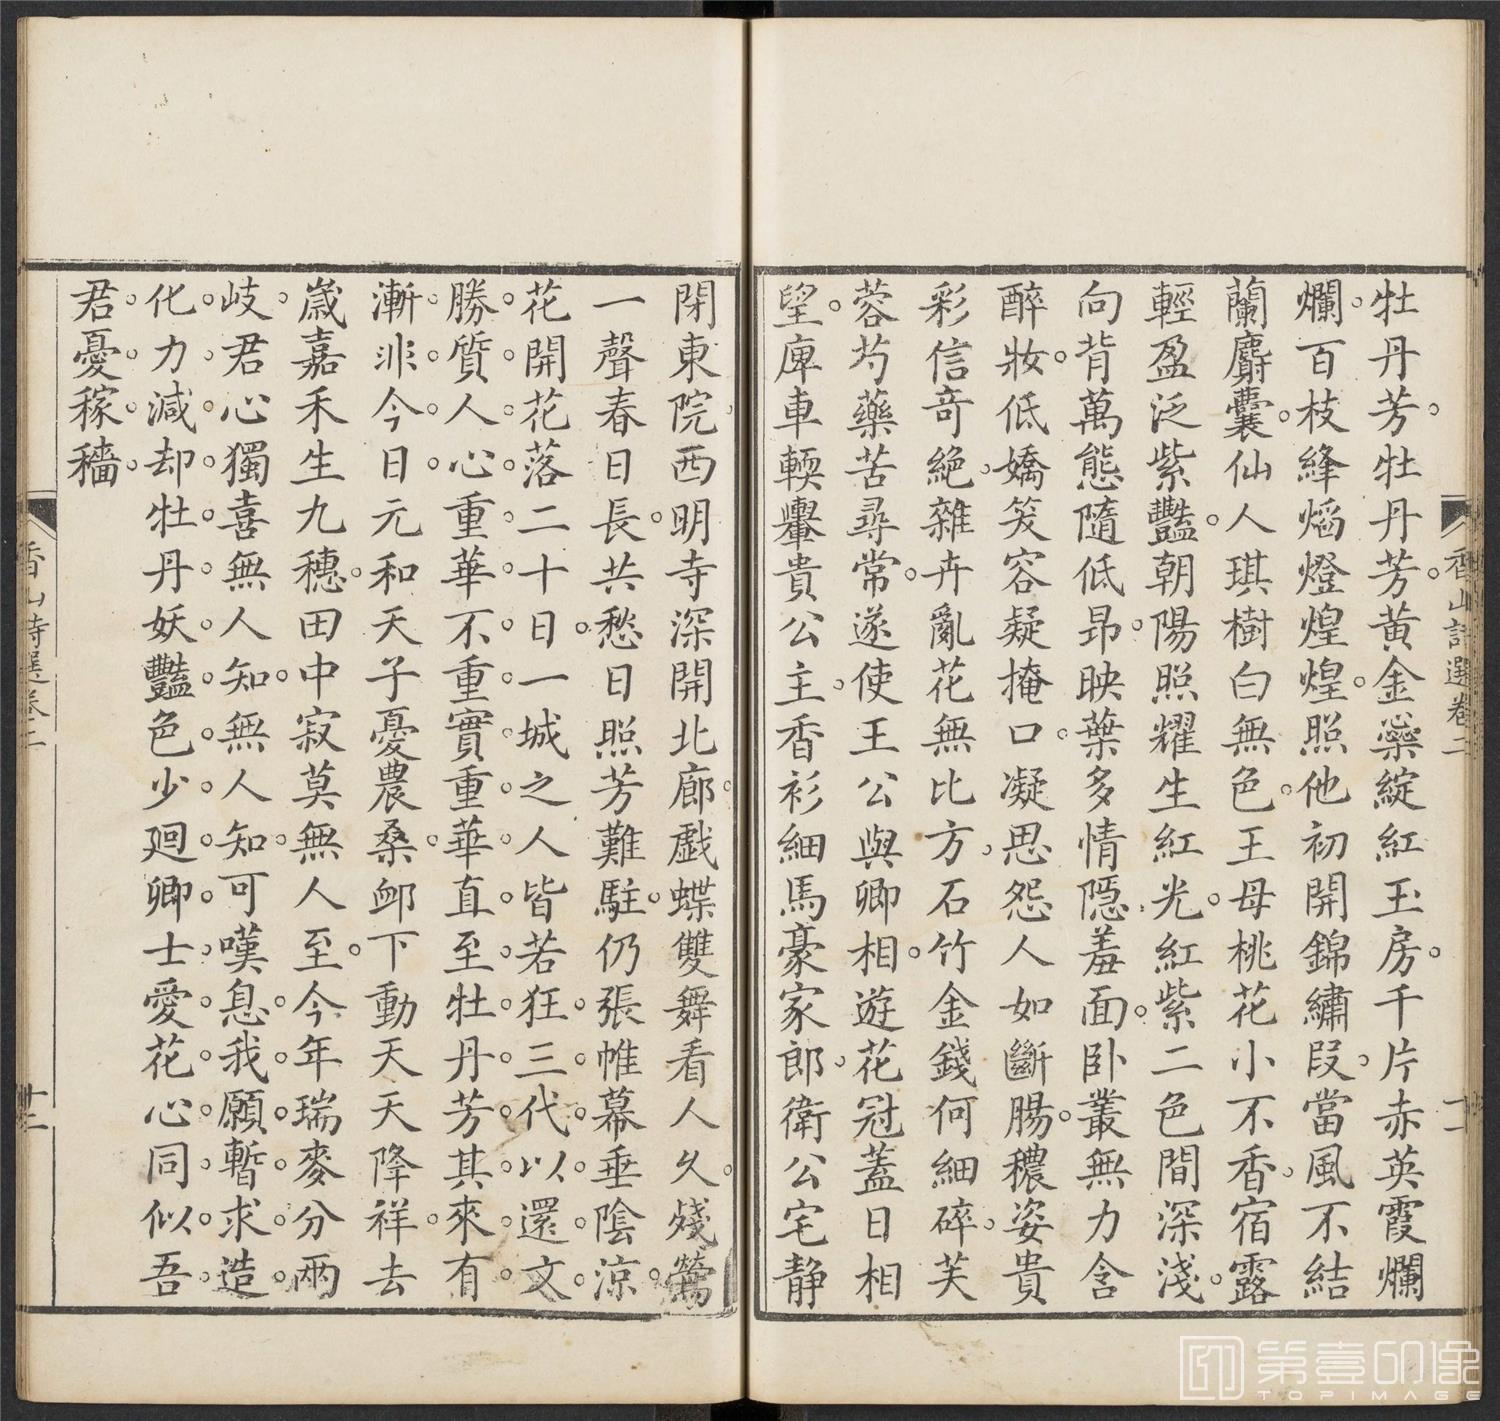 牡丹芳牡丹芳黃金蘂綻紅玉房千片赤英霞爛
爛百枝絳熖燈煌煌照他初開錦繡段當風不結
蘭麝囊仙人琪樹白無色王母桃花小不香宿露
輕盈泛紫豔朝陽照耀生紅光紅紫二色間深淺
向背萬態隨低昻映葉多情隱羞面卧叢無力含
醉妝低嬌笑容疑掩口凝思怨人如斷腸穠姿貴
彩信竒絕雜卉亂花無比方石竹金錢何細碎芙
蓉芍藥苦尋常遂使王公與卿相遊花冠蓋日相
望庳車輭轝貴公主香衫細馬豪家郎衛公宅静
香山詩選卷二
十一
閉東院西明寺深開北廊戲蝶雙舞看人久殘鶯
一聲春日長共愁日照芳難駐仍張帷幕垂陰涼
花開花落二十日一城之人皆若狂三代以還文
勝質人心重華不重實重華直至牡丹芳其來有
漸非今日元和天子憂農桑卹下動天天降祥去
歲嘉禾生九穗田中寂莫無人至今年瑞麥分兩
岐君心獨喜無人知無人知可嘆息我願暫求造
化力減却牡丹妖豔色少廻卿士愛花心同似吾
君憂稼穡
香山詩選卷二
十二
第壹印像
TOPIMAGE